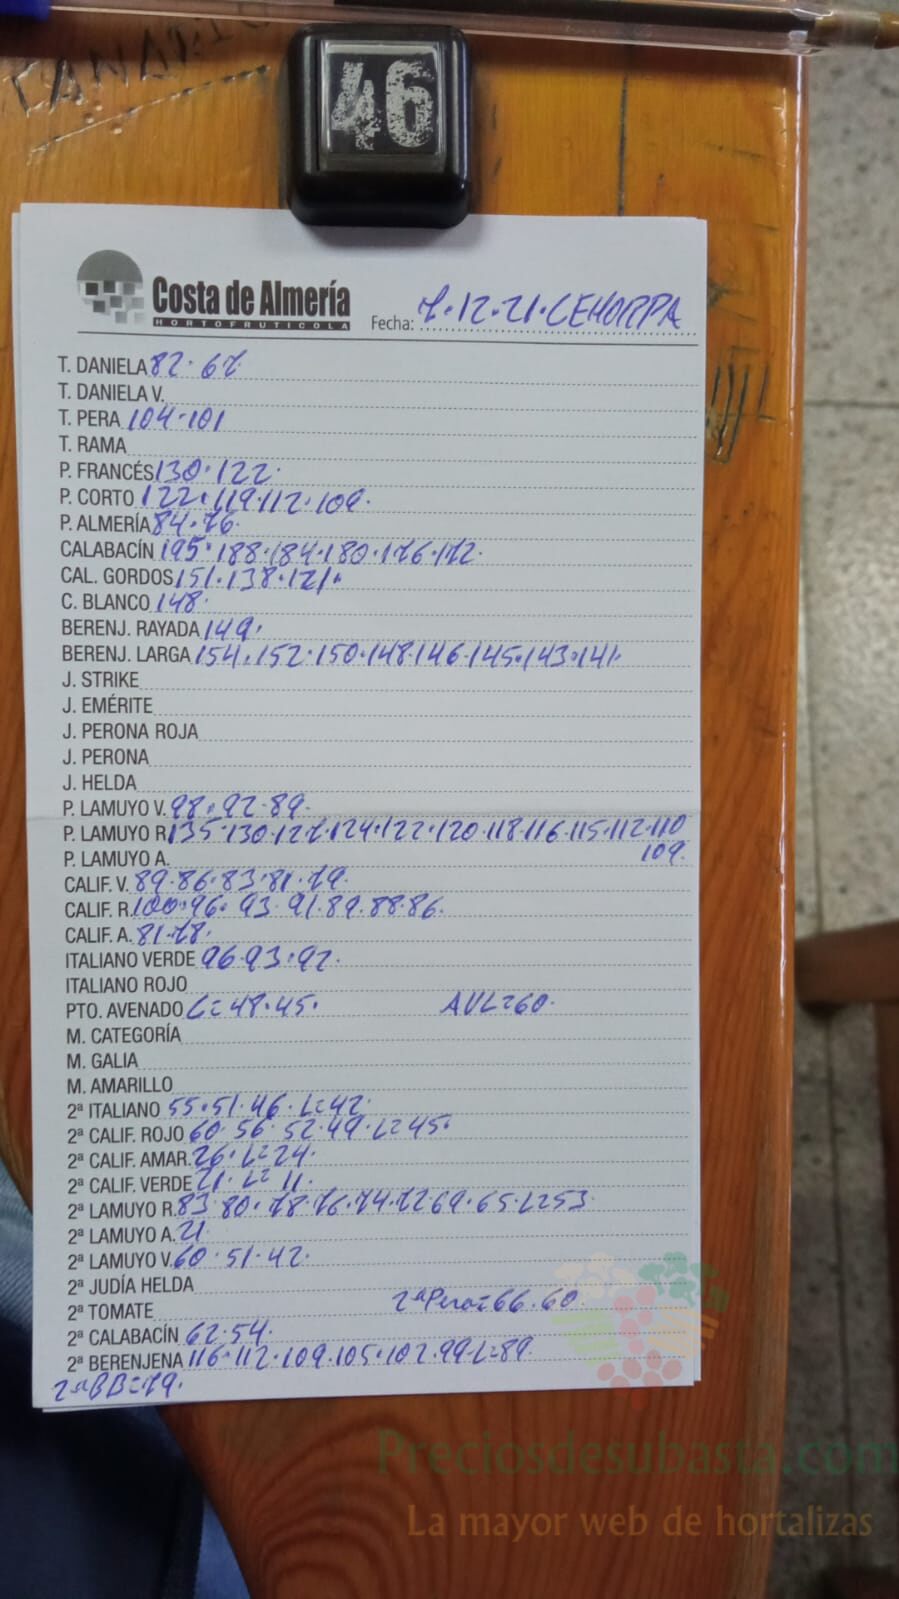 46
Costa de Almería
HORTOFRUTICOLA
Fecha: 7.12.21.CEHORPA
T. DANIELA 82.67.
T. DANIELA V.
T. PERA 104.101
T. RAMA
P. FRANCÉS 130.122.
P. CORTO 122.119.112.109.
P. ALMERÍA 84.76.
CALABACÍN 195.188.184.180.176.172.
CAL. GORDOS 151.138.121.
C. BLANCO 148.
BERENJ. RAYADA 149.
BERENJ. LARGA 154.152.150.148.146.145.143.141.
J. STRIKE
J. EMÉRITE
J. PERONA ROJA
J. PERONA
J. HELDA
P. LAMUYO V. 98.92.89.
P. LAMUYO R. 135.130.127.124.122.120.118.116.115.112.110
109.
P. LAMUYO A.
CALIF. V. 89.86.83.81.79.
CALIF. R. 100.96.93.91.89.88.86.
CALIF. A. 81.78.
ITALIANO VERDE 96.93.92.
ITALIANO ROJO
PTO. AVENADO L=48.45. AVL=60.
M. CATEGORÍA
M. GALIA
M. AMARILLO
2ª ITALIANO 55.51.46.L=42.
2ª CALIF. ROJO 60.56.52.49.L=45.
2ª CALIF. AMAR. 26.L=24.
2ª CALIF. VERDE 21.L=11.
2ª LAMUYO R. 83.80.78.76.74.72.69.65.L=53.
2ª LAMUYO A. 21
2ª LAMUYO V. 60.51.42.
2ª JUDÍA HELDA
2ª TOMATE 2ªPera=66.60.
2ª CALABACÍN 62.54.
2ª BERENJENA 116.112.109.105.102.99.L=89.
2ªBB=79.
Preciosdesubasta.com
La mayor web de hortalizas